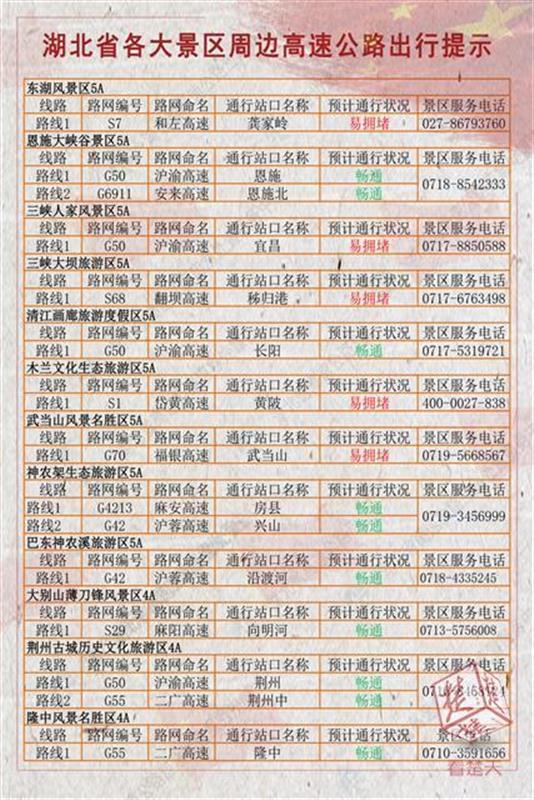 湖北省各大景区周边高速公路出行提示
东湖风景区5A
线路 路网编号 路网命名 通行站口名称 预计通行状况 景区服务电话
路线1 S7 和左高速 龚家岭 易拥堵 027-86793760
恩施大峡谷景区5A
线路 路网编号 路网命名 通行站口名称 预计通行状况 景区服务电话
路线1 G50 沪渝高速 恩施 畅通 0718-8542333
路线2 G6911 安来高速 恩施北 畅通
三峡人家风景区5A
线路 路网编号 路网命名 通行站口名称 预计通行状况 景区服务电话
路线1 G50 沪渝高速 宜昌 易拥堵 0717-8850588
三峡大坝旅游区5A
线路 路网编号 路网命名 通行站口名称 预计通行状况 景区服务电话
路线1 S68 翻坝高速 秭归港 易拥堵 0717-6763498
清江画廊旅游度假区5A
线路 路网编号 路网命名 通行站口名称 预计通行状况 景区服务电话
路线1 G50 沪渝高速 长阳 畅通 0717-5319721
木兰文化生态旅游区5A
线路 路网编号 路网命名 通行站口名称 预计通行状况 景区服务电话
路线1 S1 岱黄高速 黄陂 易拥堵 400-0027-838
武当山风景名胜区5A
线路 路网编号 路网命名 通行站口名称 预计通行状况 景区服务电话
路线1 G70 福银高速 武当山 易拥堵 0719-5668567
神农架生态旅游区5A
线路 路网编号 路网命名 通行站口名称 预计通行状况 景区服务电话
路线1 G4213 麻安高速 房县 畅通 0719-3456999
路线2 G42 沪蓉高速 兴山 畅通
巴东神农溪旅游区5A
线路 路网编号 路网命名 通行站口名称 预计通行状况 景区服务电话
路线1 G42 沪蓉高速 沿渡河 畅通 0718-4335245
大别山薄刀锋风景区4A
线路 路网编号 路网命名 通行站口名称 预计通行状况 景区服务电话
路线1 S29 麻阳高速 向明河 畅通 0713-5756008
荆州古城历史文化旅游区4A
线路 路网编号 路网命名 通行站口名称 预计通行状况 景区服务电话
路线1 G50 沪渝高速 荆州 畅通
路线2 G55 二广高速 荆州中 畅通
隆中风景名胜区4A
线路 路网编号 路网命名 通行站口名称 预计通行状况 景区服务电话
路线1 G55 二广高速 隆中 畅通 0710-3591656
看楚天